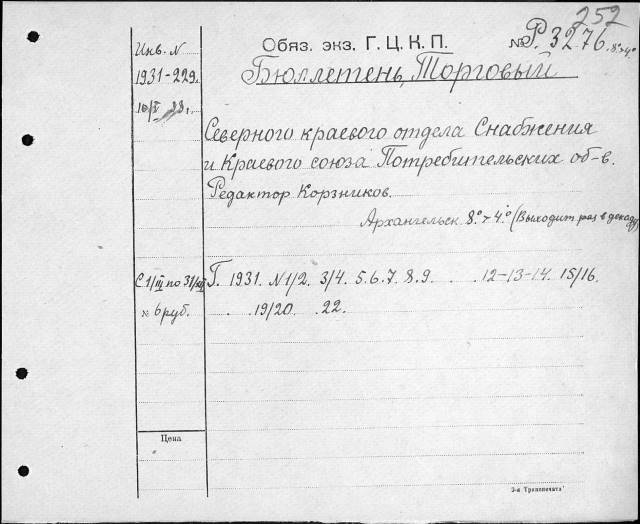 252
Инв. N
Обяз. экз. Г. Ц. К. П.
№ Р. 3276. 8°>4°
1931-229.
Бюллетень, Торговый
Северного краевого отдела Снабжения
и Краевого союза Потребительских об-в.
Редактор Корзников.
Архангельск 8°>4° (Выходит раз в декаду)
С 1/III по 31/XII
6 руб.
Г. 1931. N 1/2. 3/4. 5.6.7. 8.9. . . 12-13-14. 15/16.
. . 19/20. . 22.
Цена
3-я Транспечати